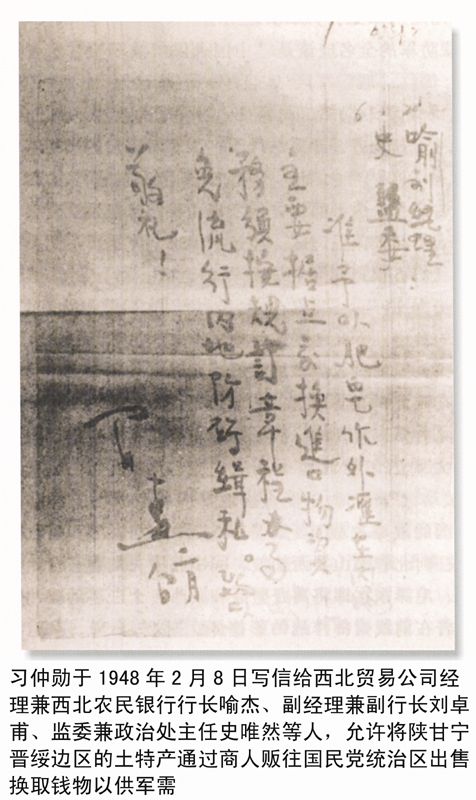 喻刘经理：
史 监委
准予以肥皂作外汇在
主要据点交换进口物资
务须按规订章程办
免流行内地防碍缉私。
敬礼！
二月
习仲勋于 1948 年 2 月 8 日写信给西北贸易公司经
理兼西北农民银行行长喻杰、副经理兼副行长刘卓
甫、监委兼政治处主任史唯然等人，允许将陕甘宁
晋绥边区的土特产通过商人贩往国民党统治区出售
换取钱物以供军需